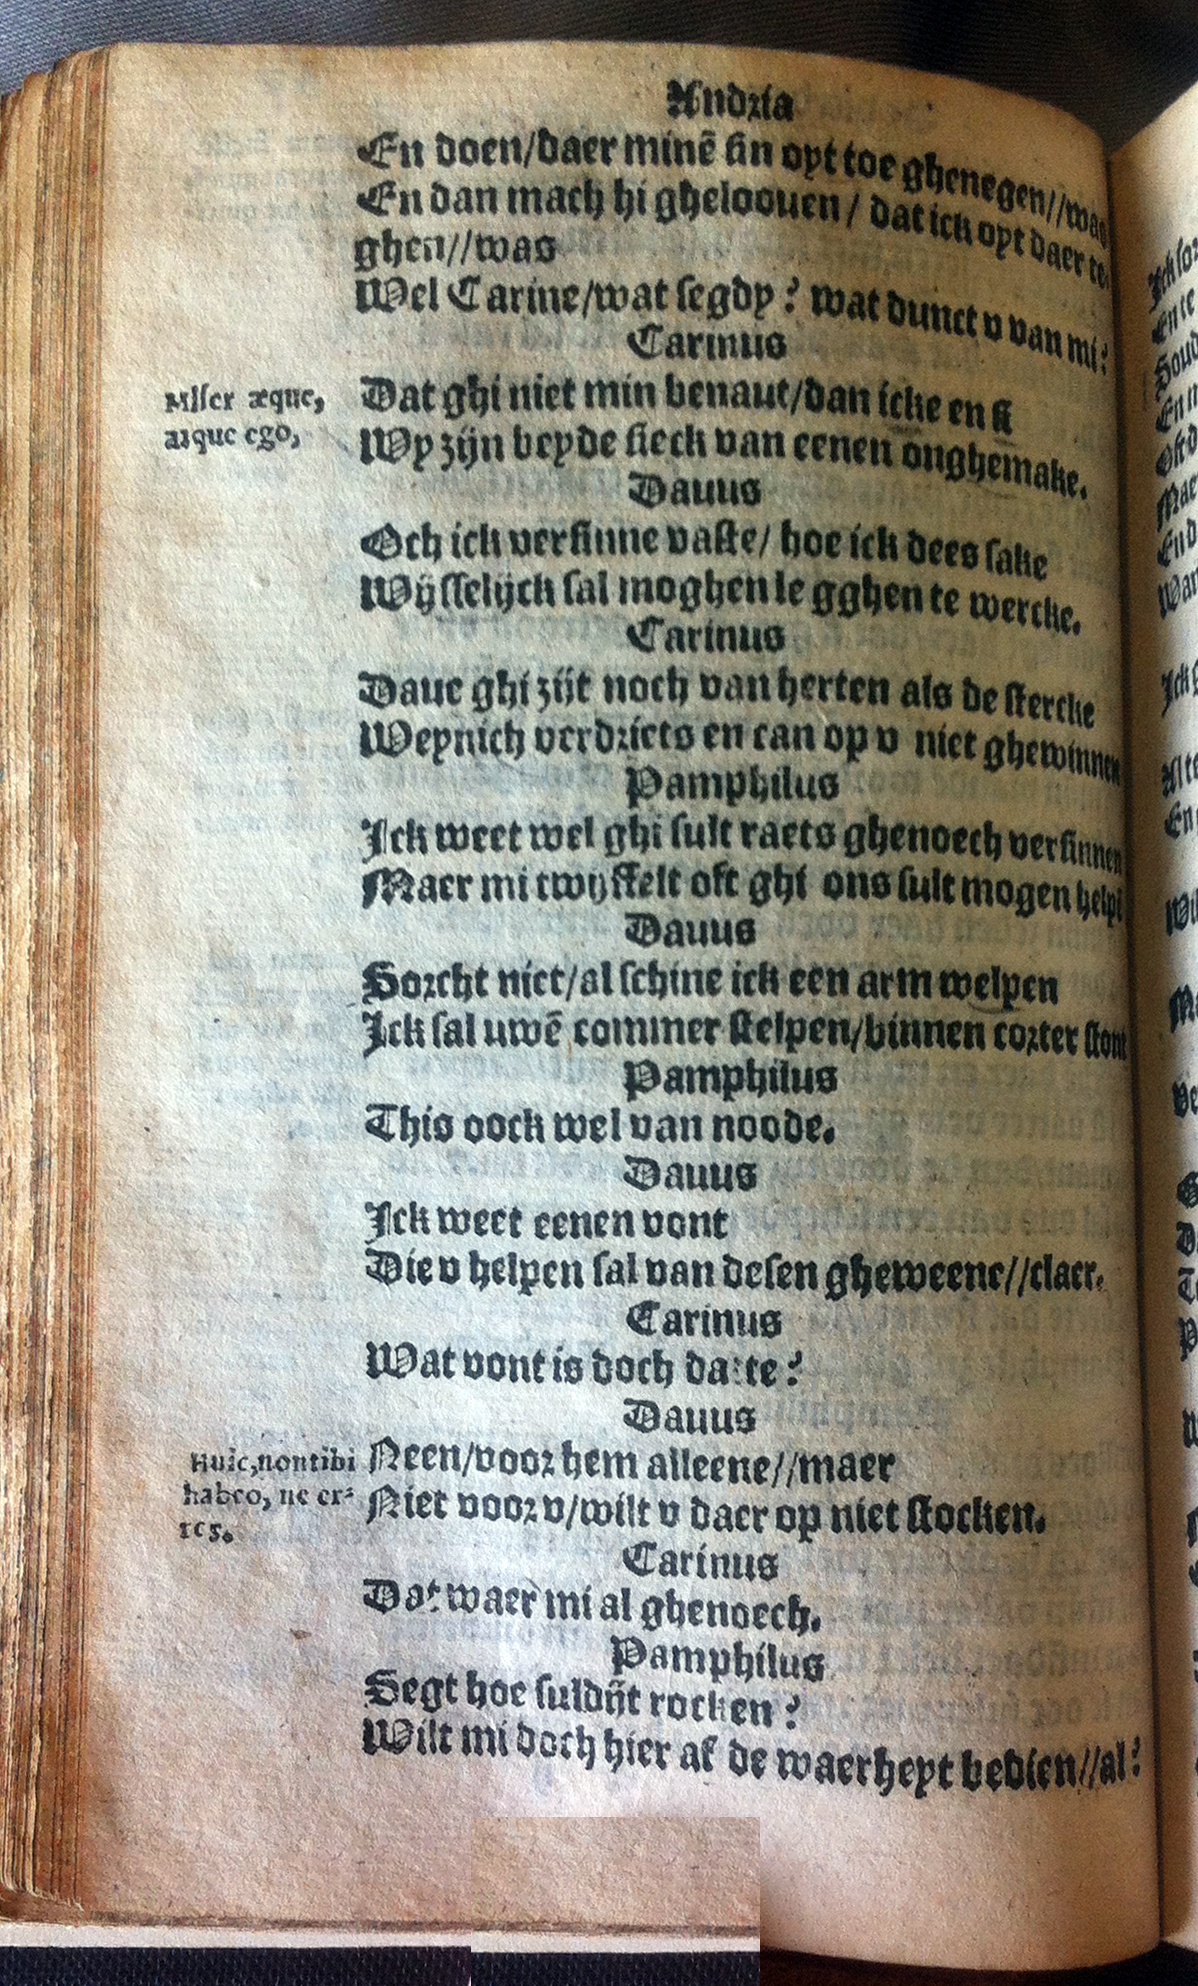 Andria
En doen/daer minē sin oyt toe ghenegen//was
En dan mach hi gheloouen / dat ick oyt daer te
ghen//was
Wel Carine/wat segdy? wat dunct v van mi?
Carinus
Miser æque,
atque ego,
Dat ghi niet min benaut/dan icke en si
Wy zijn beyde sieck van eenen onghemake.
Dauus
Och ick versinne vaste/ hoe ick dees sake
Wijsselijck sal moghen le gghen te wercke.
Carinus
Daue ghi zijt noch van herten als de stercke
Weynich verdriets en can op v niet ghewinnen
Pamphilus
Ick weet wel ghi sult raets ghenoech versinnen
Maer mi twijffelt oft ghi ons sult mogen helpē
Dauus
Sorcht niet/al schine ick een arm welpen
Ick sal uwē commer stelpen/binnen corter stont
Pamphilus
This oock wel van noode.
Dauus
Ick weet eenen vont
Die v helpen sal van desen gheweene//claer.
Carinus
Wat vont is doch datte?
Dauus
Huic, non tibi
habeo, ne er⸗
res.
Neen/voor hem alleene//maer
Niet voor v/wilt v daer op niet stocken.
Carinus
Dat waer mi al ghenoech.
Pamphilus
Segt hoe suldijt rocken?
Wilt mi doch hier af de waerheyt bedien//al?